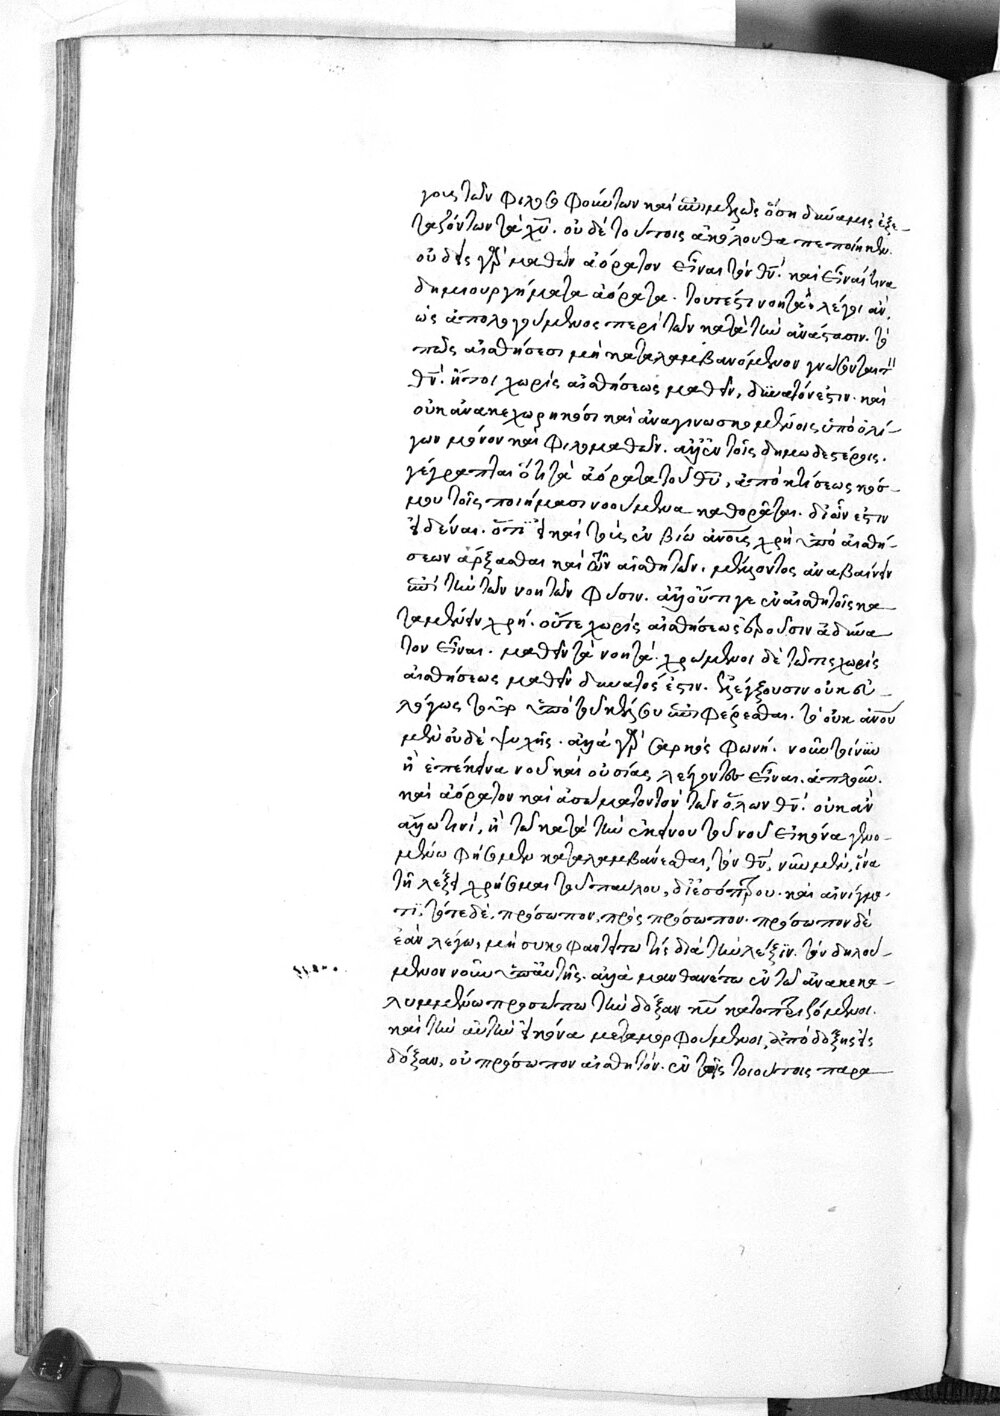 γοις τῶν φιλοσοφούντων καὶ ἐπιμελῶς ὅση δύναμις ἐξε-
ταζόντων τὰ χῦ. οὐδὲ τούτοις ἀκόλουθα πεποίηκεν.
οὐδεὶς γὰρ μαθὼν ἀόρατον εἶναι τὸν θν̅. καὶ εἶναί τινα
δημιουργήματα ἀόρατα. τουτέστι νοητὰ. λέγοι ἂν,
ὡς ἀπολογούμενος περὶ τῶν κατὰ τὴν ἀνάστασιν. τὸ
πῶς αἰσθήσεσι μὴ καταλαμβανόμενον γνώσονται τὸν
θν̅. ἤ τι χωρὶς αἰσθήσεως μαθεῖν, δυνατόν ἐστιν. καὶ
οὐκ ἀνακεχωρηκόσι καὶ ἀναγινωσκομένοις ὑπὸ ὀλί-
γων μόνον καὶ φιλομαθῶν. ἀλλ' ἐν τοῖς δημωδεστέροις.
γέγραπται ὅτι τὰ ἀόρατα τοῦ θῦ, ἀπὸ κτίσεως κόσ-
μου τοῖς ποιήμασι νοούμενα καθορᾶται. δι' ὧν ἐστιν
εἰδέναι. ὅτι εἰ καὶ τοὺς ἐν βίω ἀνους χρὴ ἀπὸ αἰσθή-
σεων ἄρξασθαι καὶ τῶν αἰσθητῶν, μέλλοντας ἀναβαίνειν
ἐπὶ τὴν τῶν νοητῶν φύσιν. ἀλλ' οὔτι γε ἐν αἰσθητοῖς κα-
ταμένειν χρή. οὔτε χωρὶς αἰσθήσεως ἐροῦσιν ἀδύνα
τον εἶναι. μαθεῖν τὰ νοητά. χρώμενοι δὲ τῶ τις χωρὶς
αἰσθήσεως μαθεῖν δυνατός ἐστιν. ἐλέγξουσιν οὐκ εὐ-
λόγως τοῦτο ὑπὸ τοῦ κέλσου ἐπιφέρεσθαι. τὸ οὐκ ἀνου
μὲν οὐδὲ ψυχῆς. ἀλλὰ γὰρ σαρκὸς φωνή. νοῦν τοίνυν
ἢ ἐπέκεινα νοῦ καὶ οὐσίας λέγοντες εἶναι. ἁπλοῦν.
καὶ ἀόρατον καὶ ἀσώματον τὸν τῶν ὅλων θν̅. οὐκ ἂν
ἄλλω τινί, ἢ τῶ κατὰ τὴν ἐκείνου τοῦ νοῦ εἰκόνα γενο-
μένω φήσομεν καταλαμβάνεσθαι, τὸν θν̅, νῦν μέν, ἵνα
τῆ λέξει χρήσωμαι τοῦ παύλου, δι' ἐσόπτρου. καὶ αἰνίγμα-
τι, τότε δὲ, πρόσωπον, πρὸς πρόσωπον. πρόσωπον δὲ
ἐὰν λέγω, μὴ συκοφαντείτω τις διὰ τὴν λέξιν. τὸν δηλού-
μενον νοῦν ὑπ' αὐτῆς. ἀλλὰ μανθανέτω ἐν τῶ ἀνακεκα-
λυμμένω προσώπω τὴν δόξαν κῦ κατοπτριζόμενοι.
καὶ τὴν αὐτὴν εἰκόνα μεταμορφούμενοι, ἀπὸ δόξης εἰς
δόξαν, οὐ πρόσωπον αἰσθητόν. ἐν τοῖς τοιούτοις παρα